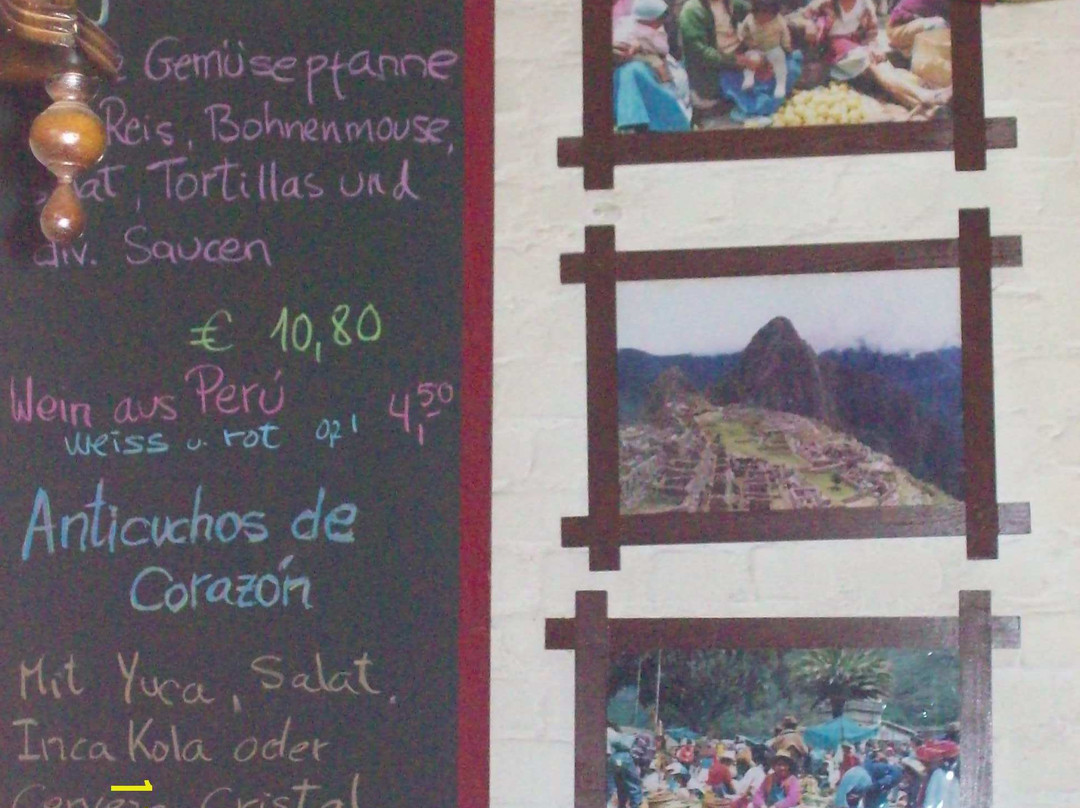 Gemüsepfanne
Reis, Bohnenmouse,
Tortillas und
div. Saucen
€ 10,80
Wein aus Perú 4,50
weiss u. rot
Anticuchos de
Corazón
Mit Yuca, Salat.
Inca Kola oder
Cerveza Cristal